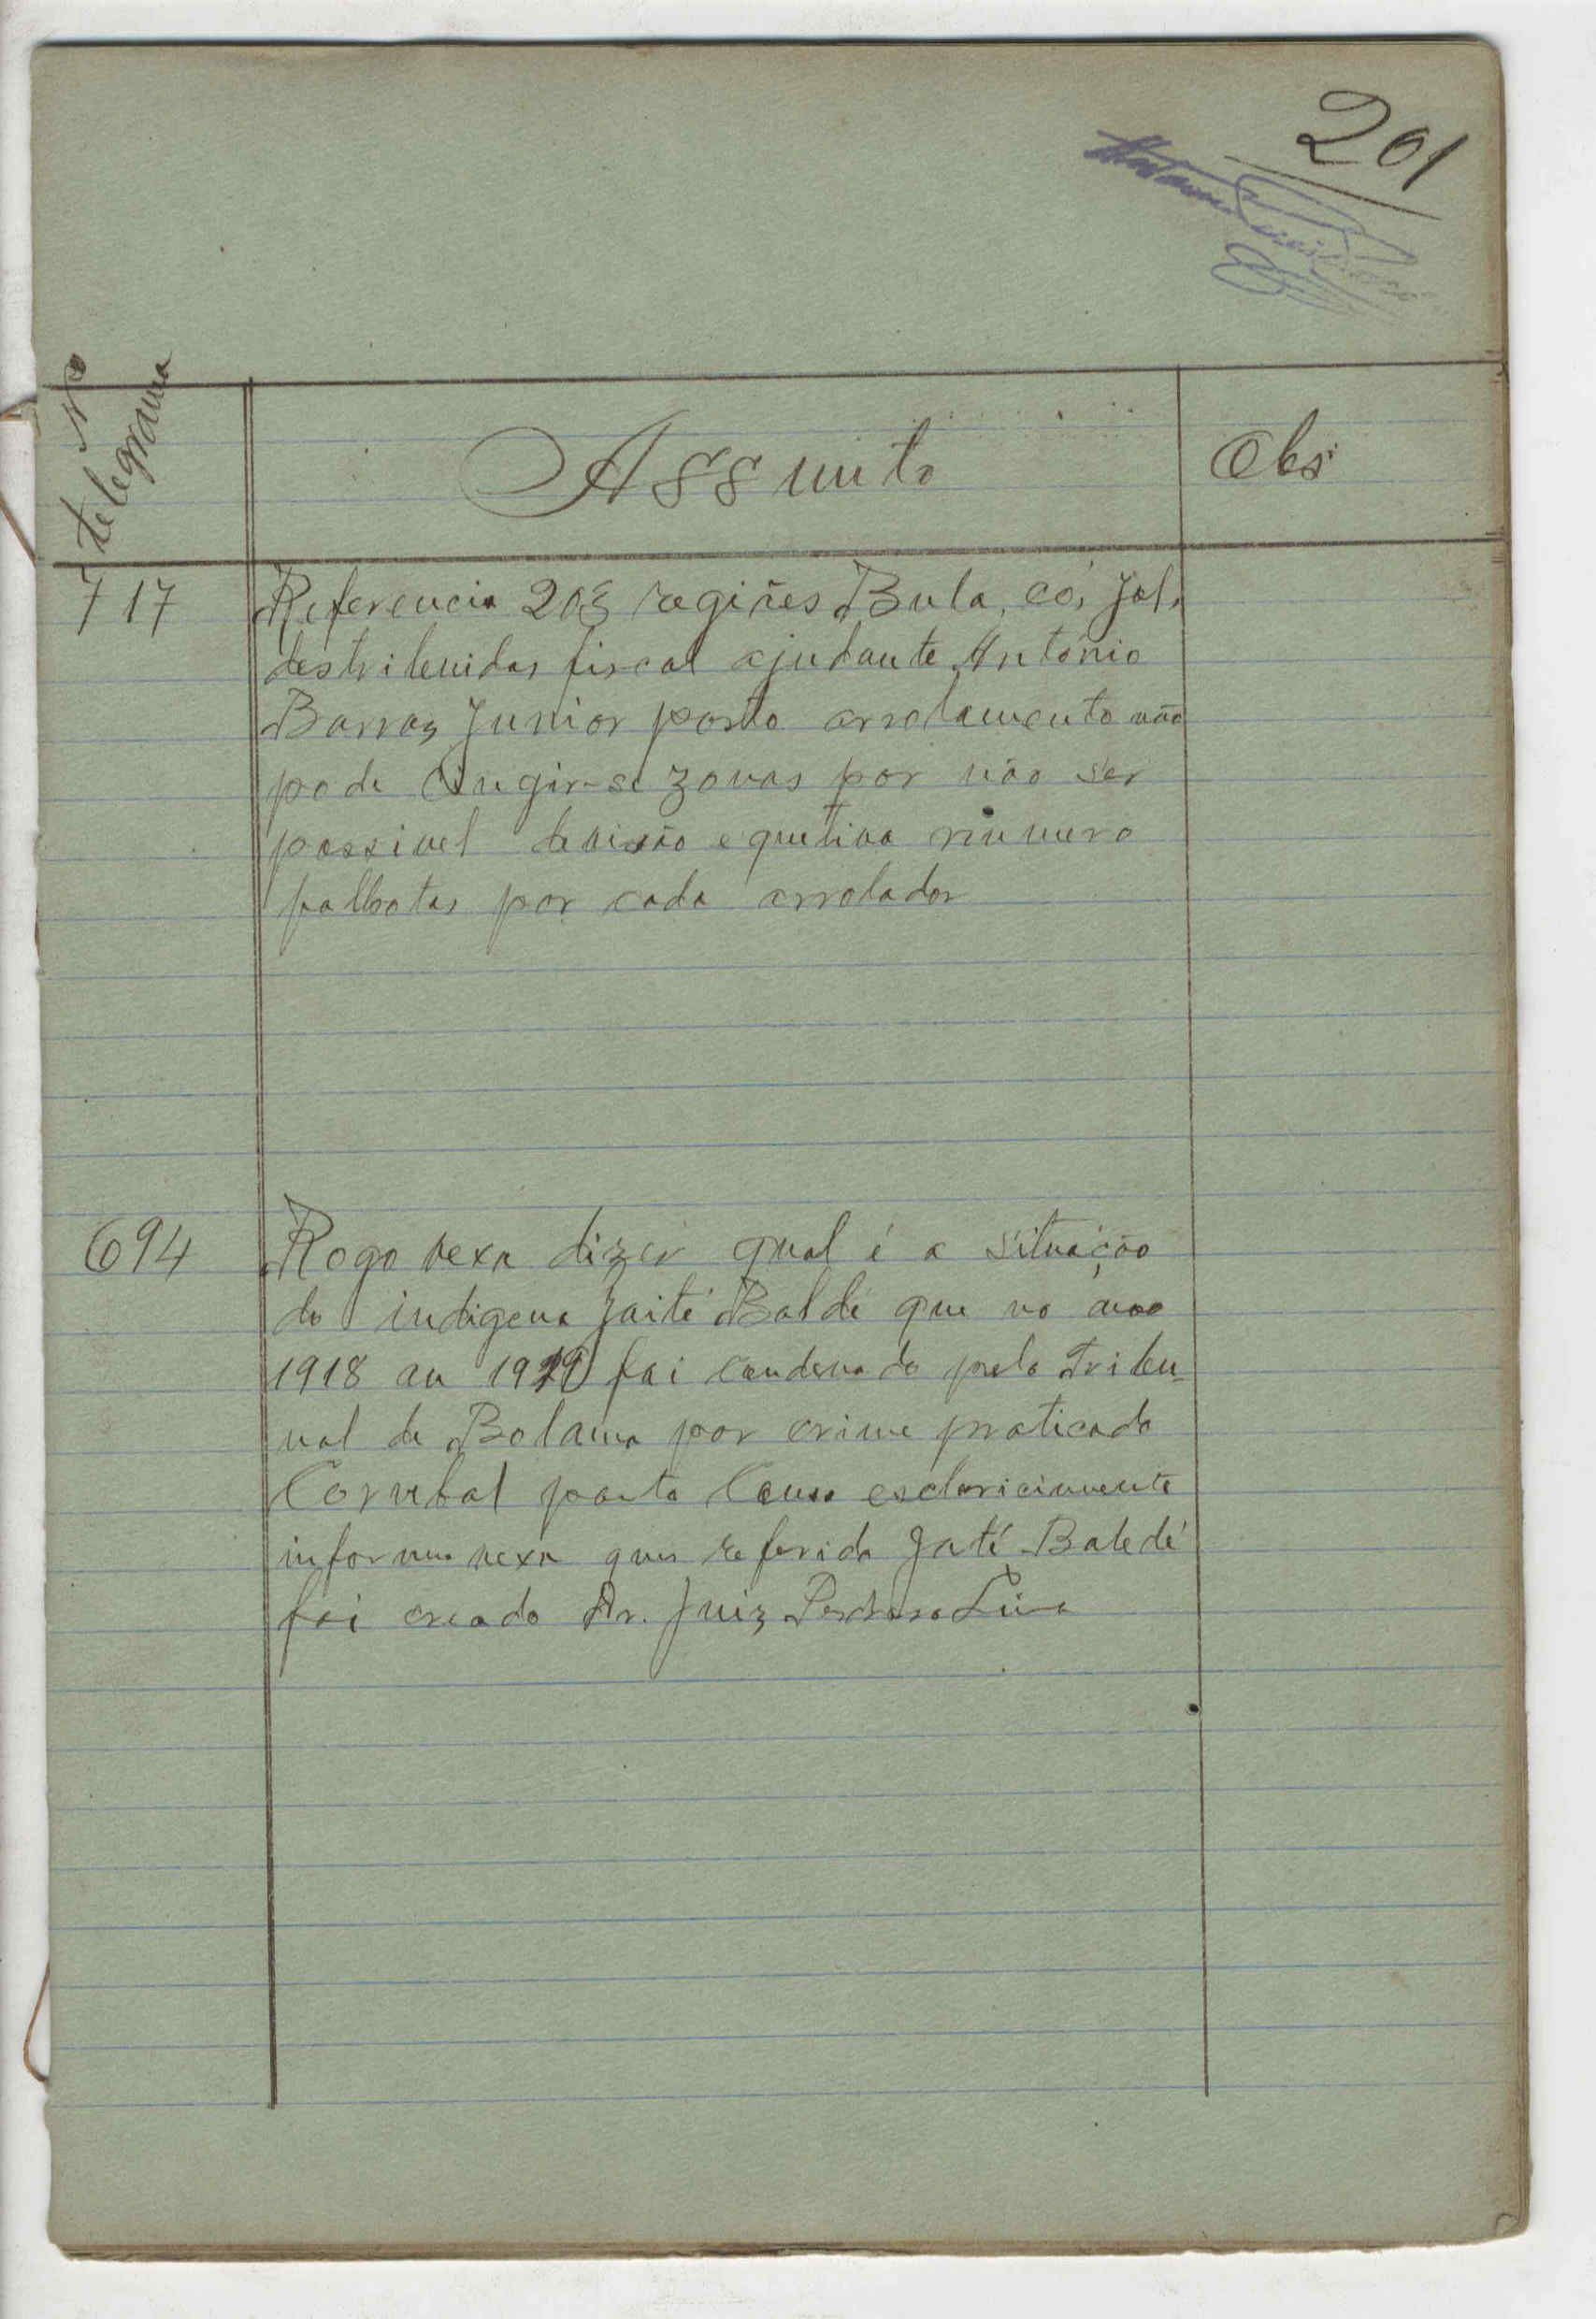 201
Nº
telegrama
Assunto
Obs
717
Referencia 203 regiões Bula, có, Jol,
destribuidas fiscal ajudante António
Barros Junior posto arrolamento não
pode cingir-se zonas por não ser
possivel devisão equetiva número
palhotas por cada arrolador
694
Rogo vexa dizer qual é a situação
do indigena Jaité Baldé que no ano
1918 au 1919 foi condenado pelo Tribu-
nal de Bolama por crime praticado
Corubal posto esclaricimento
informo vexa que referido Jaté Baldé
foi creado Dr. Juiz Lima